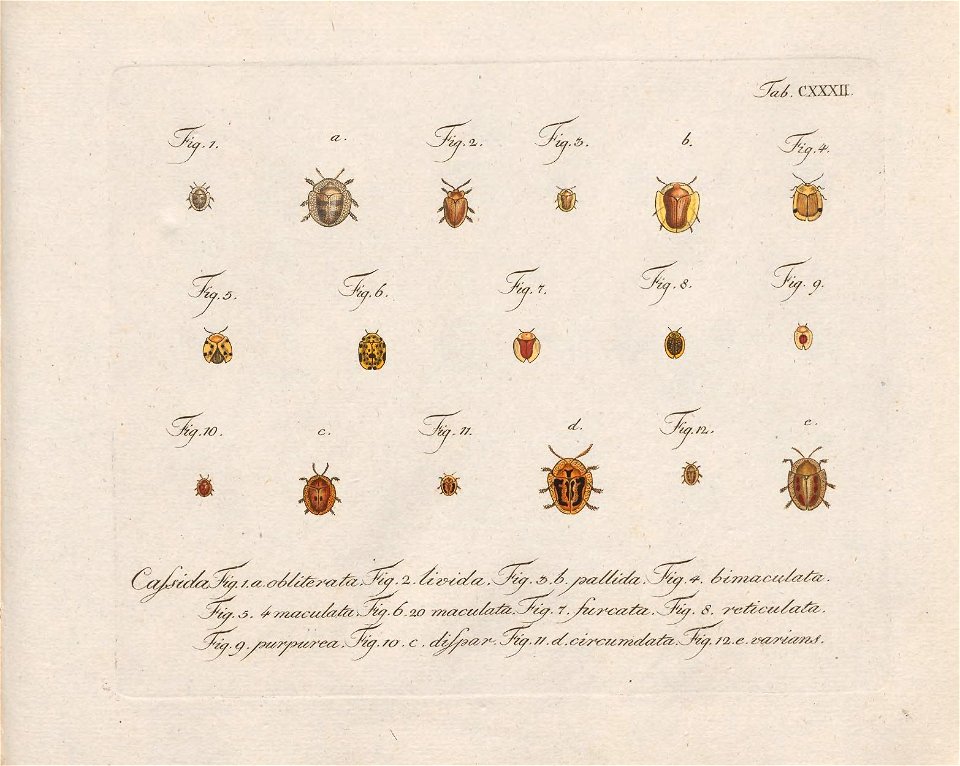 Tab. CXXXII.
Fig. 1. a. Fig. 2. Fig. 3. b. Fig. 4.
Fig. 5. Fig. 6. Fig. 7. Fig. 8. Fig. 9.
Fig. 10. c. Fig. 11. d. Fig. 12. e.
Caſsida Fig. 1. a. obliterata. Fig. 2. livida. Fig. 3. b. pallida. Fig. 4. bimaculata.
Fig. 5. 4 maculata. Fig. 6. 20 maculata. Fig. 7. furcata. Fig. 8. reticulata.
Fig. 9. purpurea. Fig. 10. c. diſpar. Fig. 11. d. circumdata. Fig. 12. e. varians.